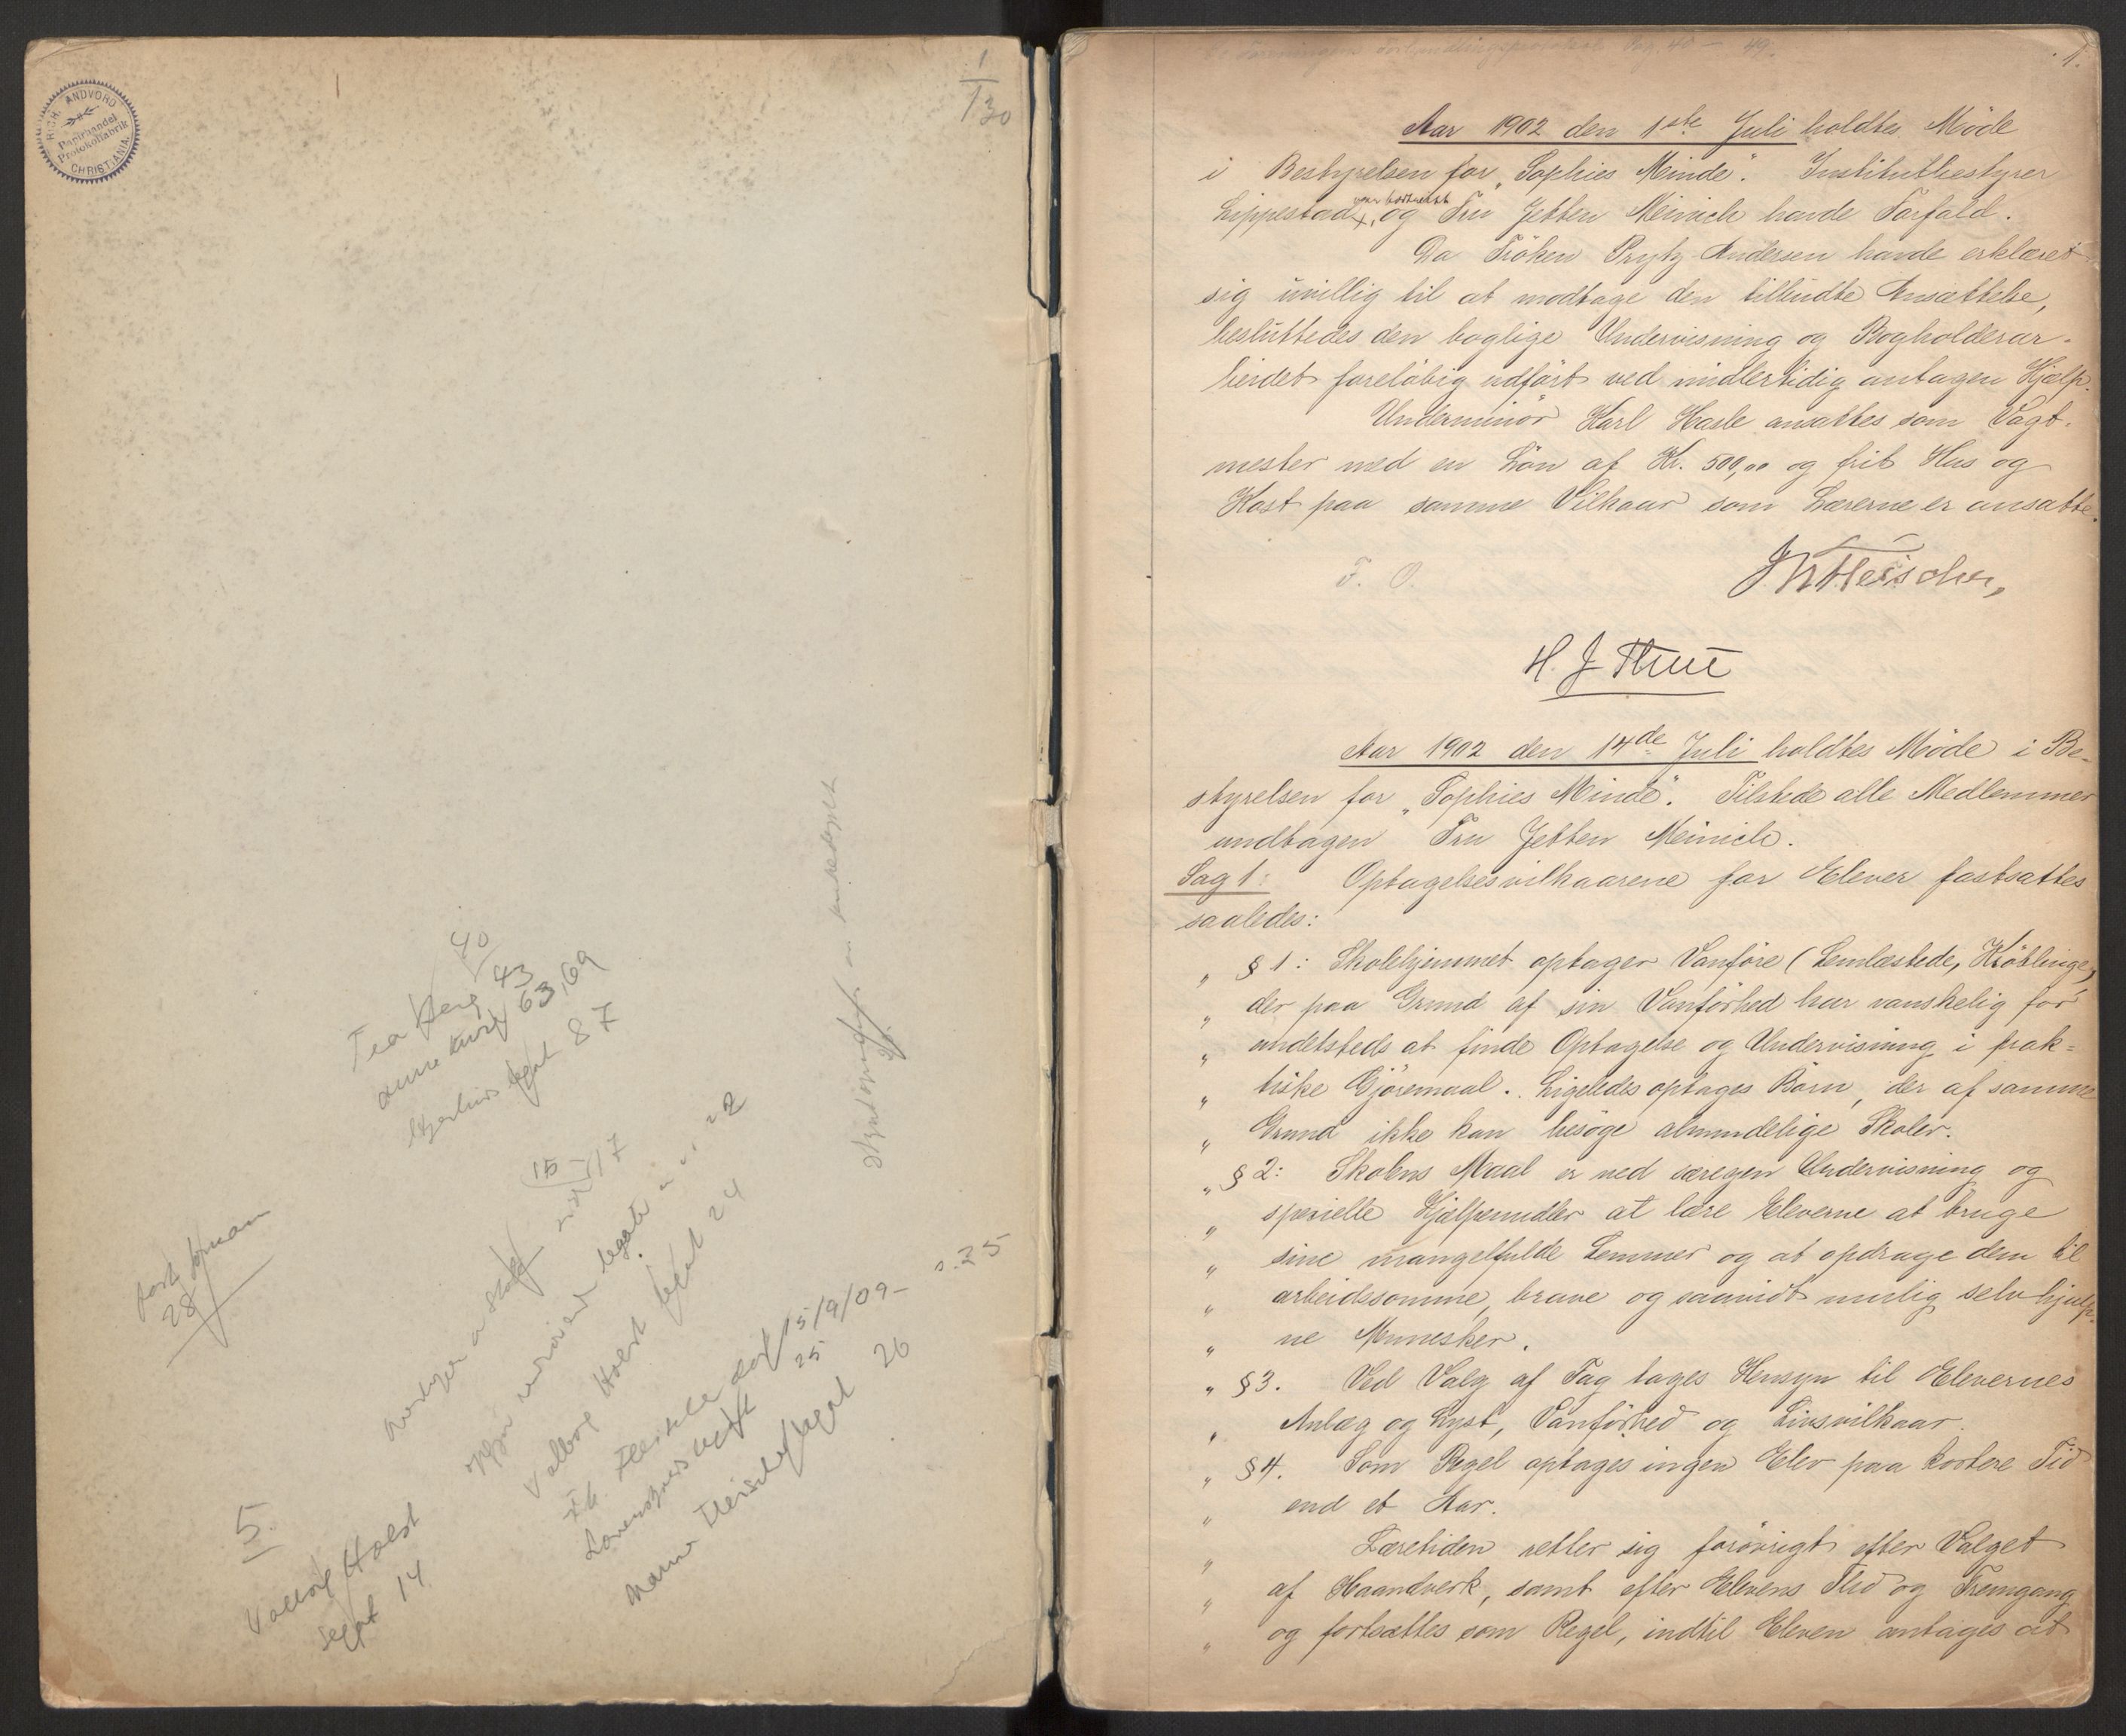 RICH. ANDVORD
Papirhandel
Protokolfabrik
CHRISTIANIA
1
130
40
Tea Berg 43
63, 69
legat 87
15 - 17
legater 22
Valborg Holst legat 24
15/9/09 - s. 25
25
legat 26
28
5.
Valborg Holst
legat 14
Forhandlingsprotokol Pag. 40 - 49.
1.
Aar 1902 den 1ste Juli holdtes Möde
i Bestyrelsen for „Sophies Minde“. Institutbestyrer
Lippestad var bortreist og Fru Jetten Meinich havde Forfald.
Da Fröken Prytz Andersen havde erklæret
sig uvillig til at modtage den tilbudte Ansættelse,
besluttedes den boglige Undervisning og Bogholderar-
beidet foreløbig udført ved midlertidig antagen Hjælp.
Underminör Karl Hasle ansattes som Vagt-
mester med en Lön af Kr. 500,00 og frit Hus og
Kost paa samme Vilkaar som Lærerne er ansatte.
F. O.
H. J. Thue
Aar 1902 den 14de Juli holdtes Möde i Be-
styrelsen for „Sophies Minde“. Tilstede alle Medlemmer
undtagen Fru Jetten Meinich.
Sag 1: Optagelsesvilkaarene for Elever fastsattes
saaledes:
„ § 1: Skolehjemmet optager Vanföre (Lemlæstede, Kröblinge,)
„ der paa Grund af sin Vanförhed har vanskelig for
„ andetsteds at finde Optagelse og Undervisning i prak=
„ tiske Gjöremaal. Ligeledes optages Börn, der af samme
„ Grund ikke kan besöge almindelige Skoler.
„ § 2: Skolens Maal er ved særegen Undervisning og
„ specielle Hjælpemidler at lære Eleverne at bruge
„ sine mangelfulde Lemmer og at opdrage dem til
„ arbeidsomme, brave og saavidt mulig selvhjulp-
„ ne Mennesker.
„ § 3. Ved Valg af Fag tages Hensyn til Elevernes
„ Anlæg og Lyst, Vanförhed og Livsvilkaar.
„ § 4. Som Regel optages ingen Elev paa kortere Tid
„ end et Aar.
„ Læretiden retter sig forövrigt efter Valget
„ af Haandverk, samt efter Elevens Flid og Fremgang
„ og fortsættes som Regel, indtil Eleven antages at